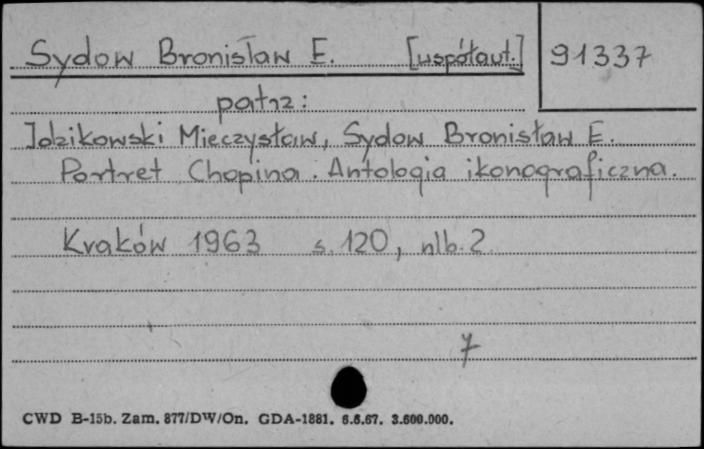 Sydow Bronisław E. [współaut.] 91337
patrz:
Idzikowski Mieczysław, Sydow Bronisław E.
Portret Chopina. Antologia ikonograficzna.
Kraków 1963 s. 120, nlb. 2
7
CWD B-15b. Zam. 877/DW/On. GDA-1881. 6.6.67. 3.600.000.